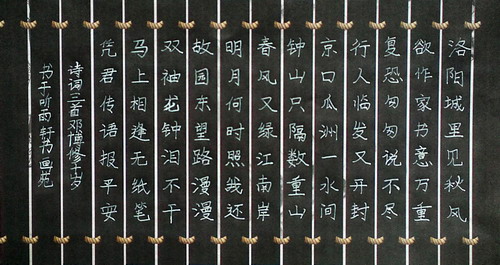 洛阳城里见秋风
欲作家书意万重
复恐匆匆说不尽
行人临发又开封
京口瓜洲一水间
钟山只隔数重山
春风又绿江南岸
明月何时照我还
故园东望路漫漫
双袖龙钟泪不干
马上相逢无纸笔
凭君传语报平安
诗词三首邓博修十岁
书于听雨轩书画苑